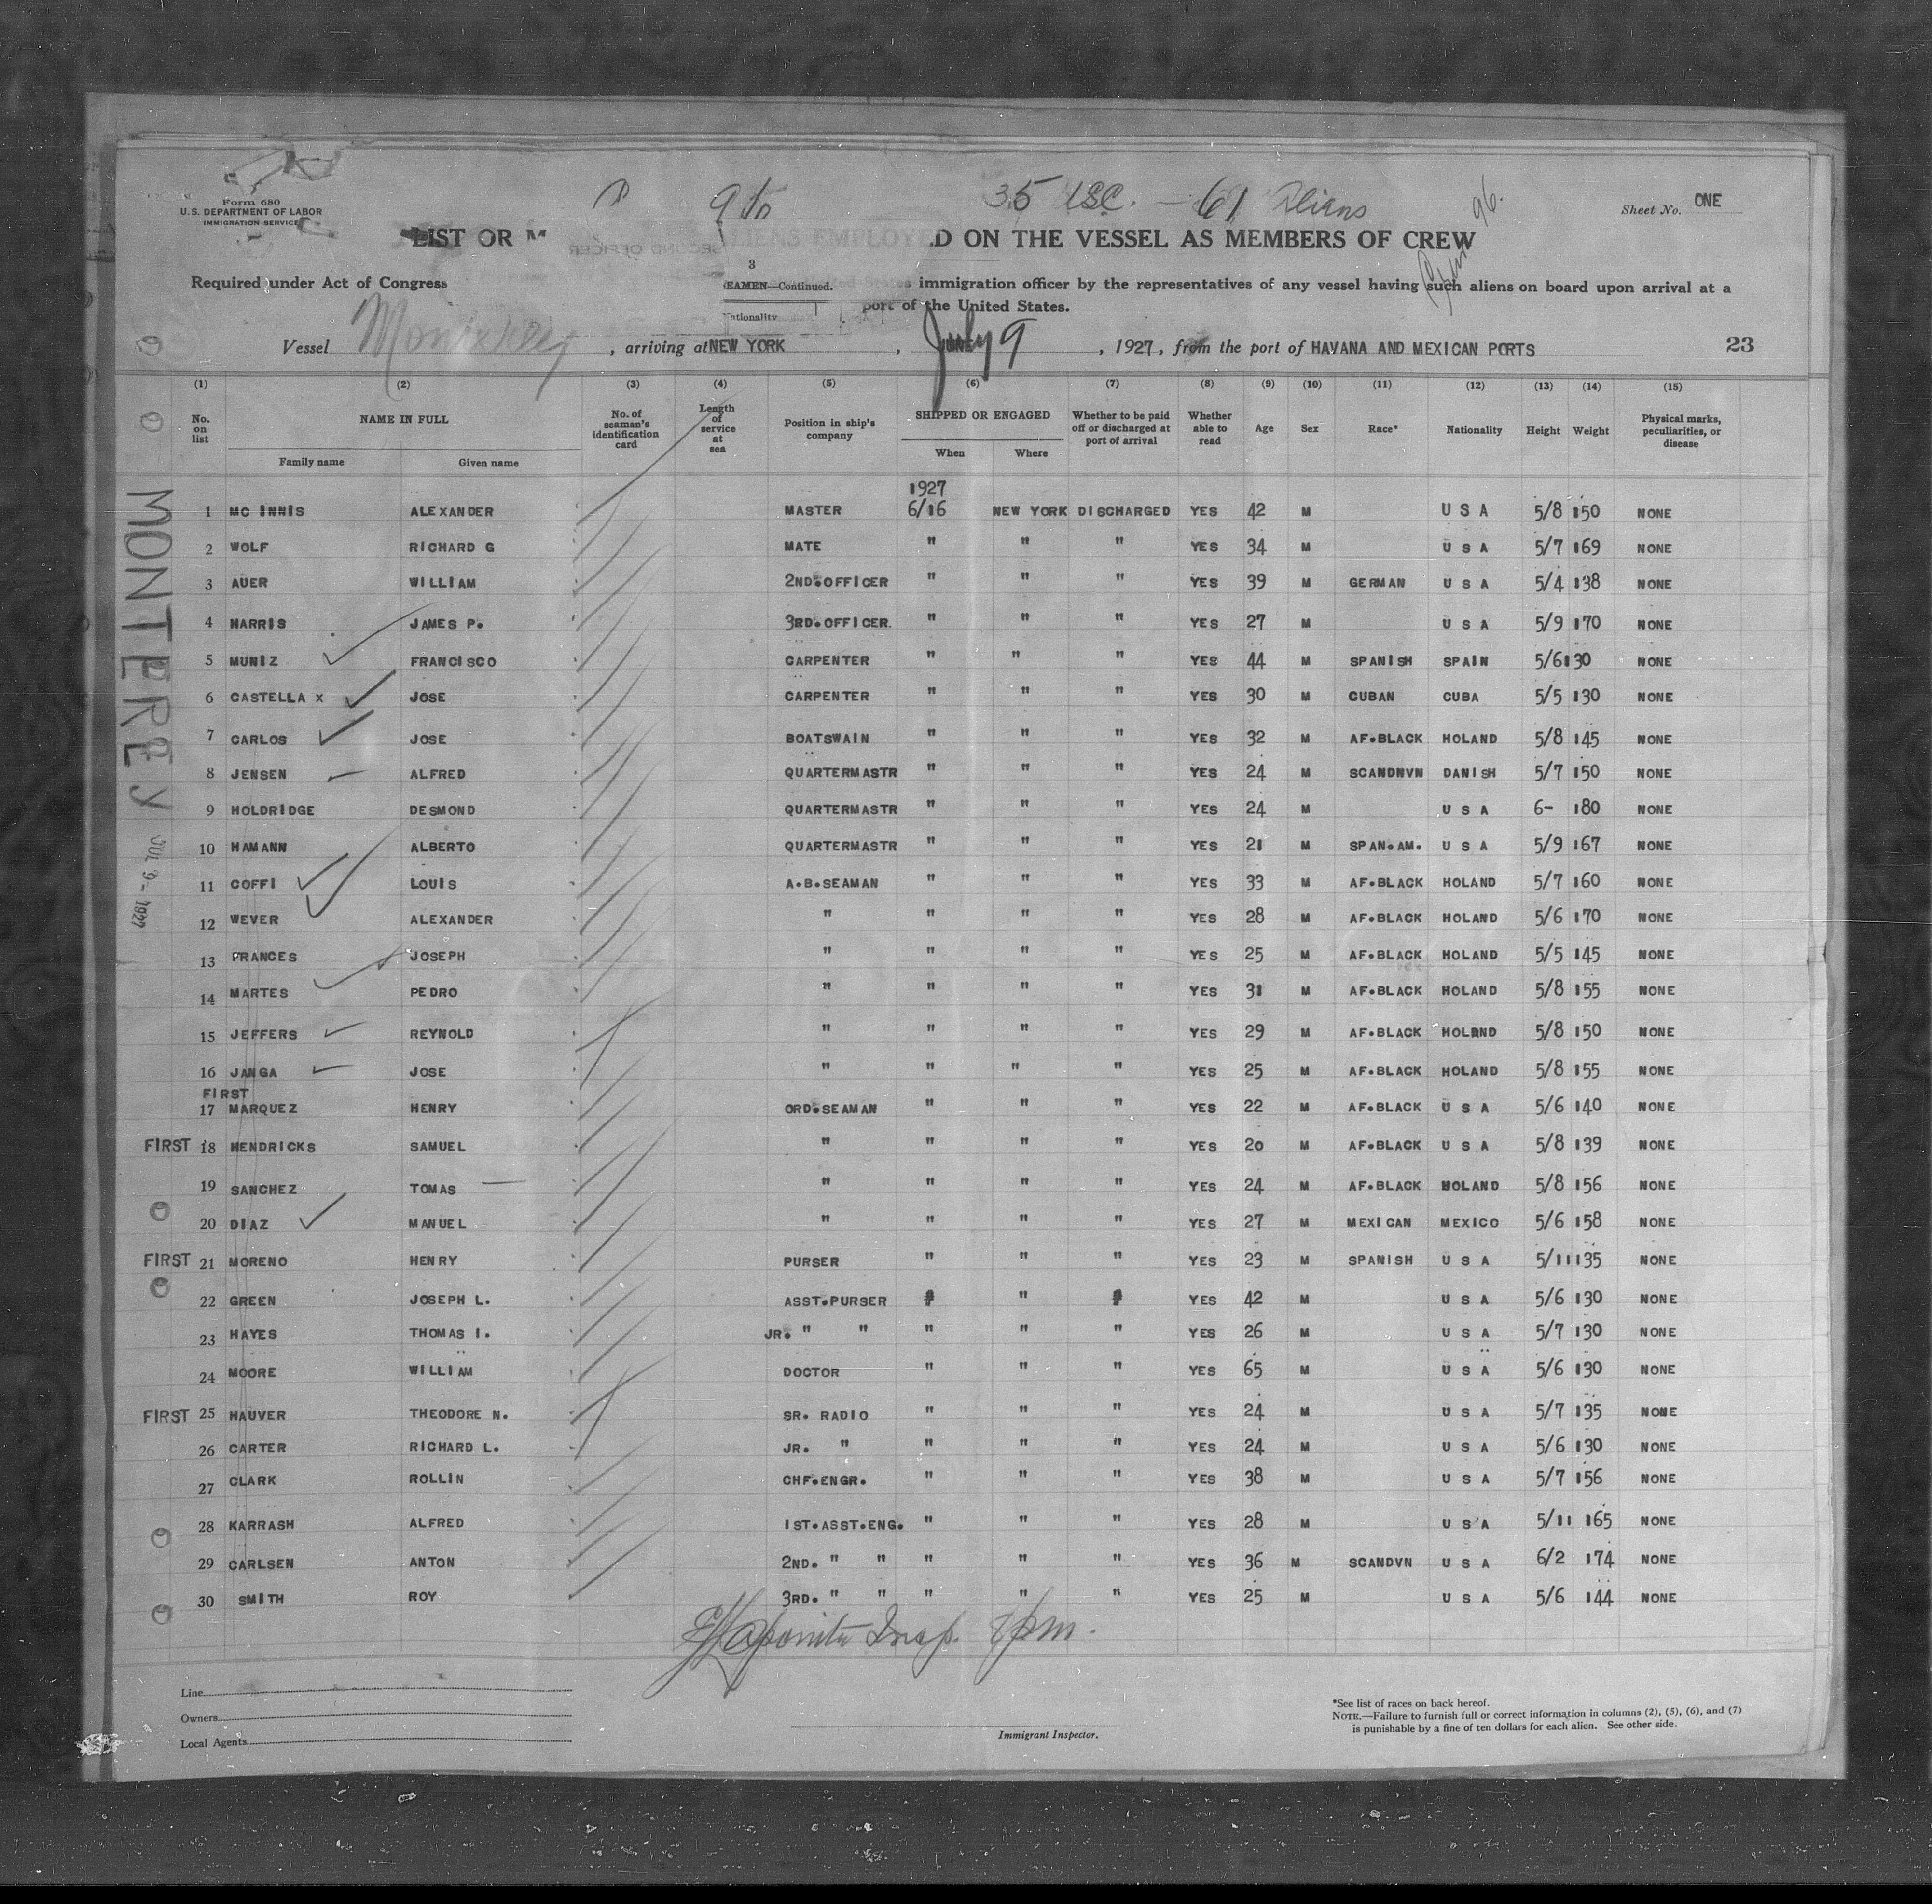 Form 680
U.S. DEPARTMENT OF LABOR
IMMIGRATION SERVICE
35 USC. — 61 Aliens
96.
Sheet No. ONE
LIST OR M ALIENS EMPLOYED ON THE VESSEL AS MEMBERS OF CREW
SECOND OFFICER
3
EAMEN—Continued.
Nationality
Required under Act of Congress immigration officer by the representatives of any vessel having such aliens on board upon arrival at a
port of the United States.
Vessel Monterrey, arriving at NEW YORK, July 9, 1927, from the port of HAVANA AND MEXICAN PORTS 23
(1) (2) (3) (4) (5) (6) (7) (8) (9) (10) (11) (12) (13) (14) (15)
No. on list NAME IN FULL Family name Given name No. of seaman's identification card Length of service at sea Position in ship's company SHIPPED OR ENGAGED When Where Whether to be paid off or discharged at port of arrival Whether able to read Age Sex Race* Nationality Height Weight Physical marks, peculiarities, or disease
MONTEREY
JUL 9- 1927
1927
1 MC INNIS ALEXANDER MASTER 6/16 NEW YORK DISCHARGED YES 42 M U S A 5/8 150 NONE
2 WOLF RICHARD G MATE " " " YES 34 M U S A 5/7 169 NONE
3 AUER WILLIAM 2ND.OFFICER " " " YES 39 M GERMAN U S A 5/4 138 NONE
4 HARRIS JAMES P. 3RD.OFFICER. " " " YES 27 M U S A 5/9 170 NONE
5 MUNIZ FRANCISCO CARPENTER " " " YES 44 M SPANISH SPAIN 5/6 130 NONE
6 CASTELLA X JOSE CARPENTER " " " YES 30 M CUBAN CUBA 5/5 130 NONE
7 CARLOS JOSE BOATSWAIN " " " YES 32 M AF.BLACK HOLAND 5/8 145 NONE
8 JENSEN ALFRED QUARTERMASTR " " " YES 24 M SCANDNVN DANISH 5/7 150 NONE
9 HOLDRIDGE DESMOND QUARTERMASTR " " " YES 24 M U S A 6- 180 NONE
10 HAMANN ALBERTO QUARTERMASTR " " " YES 21 M SPAN.AM. U S A 5/9 167 NONE
11 COFFI LOUIS A.B.SEAMAN " " " YES 33 M AF.BLACK HOLAND 5/7 160 NONE
12 WEVER ALEXANDER " " " " YES 28 M AF.BLACK HOLAND 5/6 170 NONE
13 FRANCES JOSEPH " " " " YES 25 M AF.BLACK HOLAND 5/5 145 NONE
14 MARTES PEDRO " " " " YES 31 M AF.BLACK HOLAND 5/8 155 NONE
15 JEFFERS REYNOLD " " " " YES 29 M AF.BLACK HOLAND 5/8 150 NONE
16 JANGA JOSE " " " " YES 25 M AF.BLACK HOLAND 5/8 155 NONE
FIRST
17 MARQUEZ HENRY ORD.SEAMAN " " " YES 22 M AF.BLACK U S A 5/6 140 NONE
FIRST 18 HENDRICKS SAMUEL " " " " YES 20 M AF.BLACK U S A 5/8 139 NONE
19 SANCHEZ TOMAS " " " " YES 24 M AF.BLACK HOLAND 5/8 156 NONE
20 DIAZ MANUEL " " " " YES 27 M MEXICAN MEXICO 5/6 158 NONE
FIRST 21 MORENO HENRY PURSER " " " YES 23 M SPANISH U S A 5/11 135 NONE
22 GREEN JOSEPH L. ASST.PURSER " " " YES 42 M U S A 5/6 130 NONE
23 HAYES THOMAS I. JR. " " " " " YES 26 M U S A 5/7 130 NONE
24 MOORE WILLIAM DOCTOR " " " YES 65 M U S A 5/6 130 NONE
FIRST 25 HAUVER THEODORE N. SR. RADIO " " " YES 24 M U S A 5/7 135 NONE
26 CARTER RICHARD L. JR. " " " " YES 24 M U S A 5/6 130 NONE
27 CLARK ROLLIN CHF.ENGR. " " " YES 38 M U S A 5/7 156 NONE
28 KARRASH ALFRED 1ST.ASST.ENG. " " " YES 28 M U S A 5/11 165 NONE
29 CARLSEN ANTON 2ND. " " " " " YES 36 M SCANDVN U S A 6/2 174 NONE
30 SMITH ROY 3RD. " " " " " YES 25 M U S A 5/6 144 NONE
Insp. 8pm.
Line
Owners
Local Agents
Immigrant Inspector.
*See list of races on back hereof.
NOTE.—Failure to furnish full or correct information in columns (2), (5), (6), and (7)
is punishable by a fine of ten dollars for each alien. See other side.